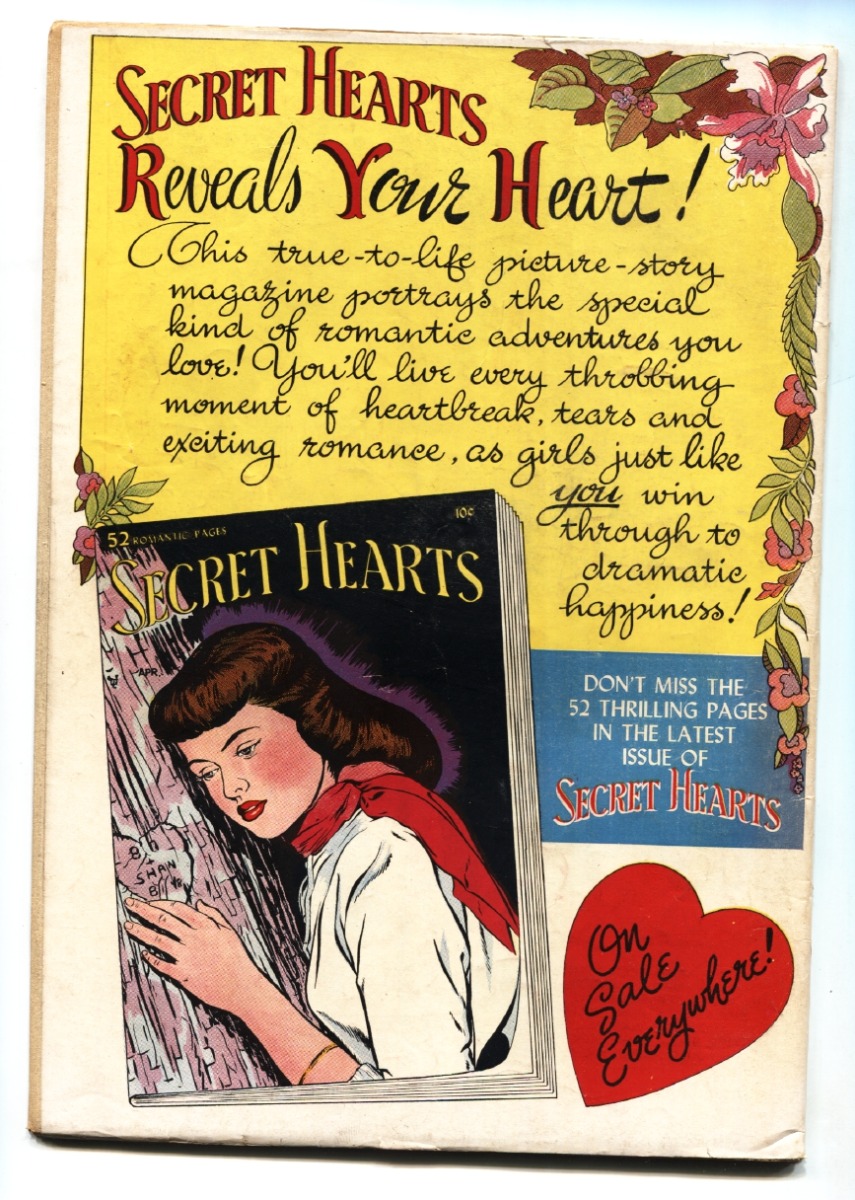 SECRET HEARTS
Reveals Your Heart!
This true-to-life picture-story
magazine portrays the special
kind of romantic adventures you
love! You'll live every throbbing
moment of heartbreak, tears and
exciting romance, as girls just like
you win
through to
dramatic
happiness!
52 ROMANTIC PAGES
10¢
SECRET HEARTS
APR.
SHAN
DON'T MISS THE
52 THRILLING PAGES
IN THE LATEST
ISSUE OF
SECRET HEARTS
On
Sale
Everywhere!